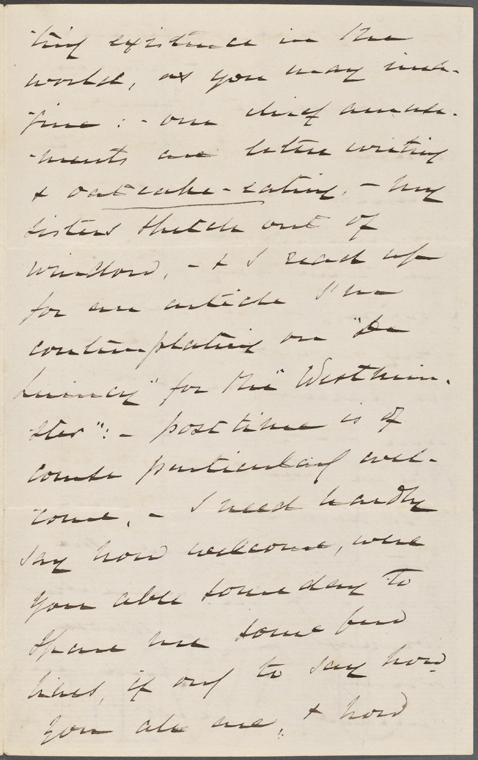 -ting existence in the
world, as you may ima-
-gine: - our chief amuse-
-ments are letter writing
& oatcake-eating, - my
sisters sketch out of
window, - & I read up
for an article I'm
contemplating on "De
Quincey" for the "Westmin-
ster": - post time is of
course particularly wel-
come, - I need hardly
say how welcome, were
you able some day to
spare me some few
lines, if only to say how
you all are, & how